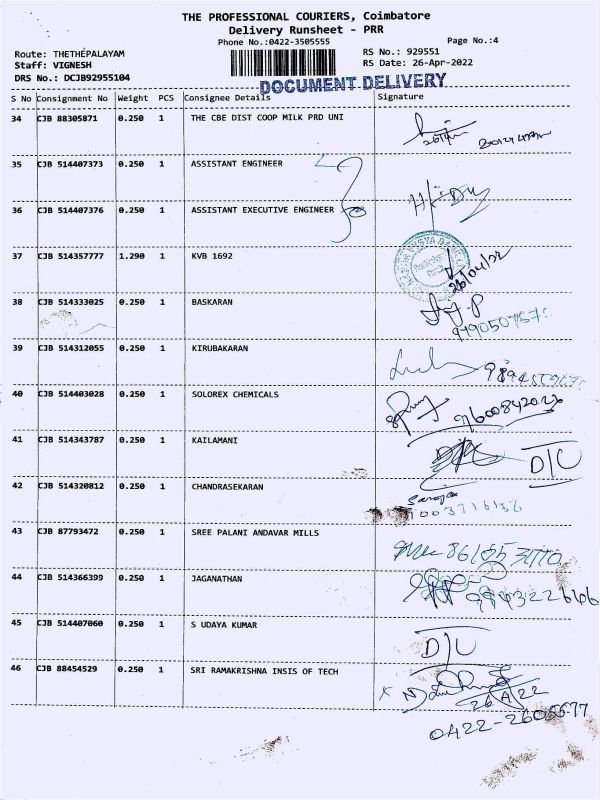 THE PROFESSIONAL COURIERS, Coimbatore
Delivery Runsheet - PRR
Phone No.:0422-3505555
Page No.:4
Route: THETHÉPALAYAM
RS No.: 929551
Staff: VIGNESH
RS Date: 26-Apr-2022
DRS No.: DCJB92955104
DOCUMENT DELIVERY
S No Consignment No Weight PCS Consignee Details Signature
34 CJB 88305871 0.250 1 THE CBE DIST COOP MILK PRD UNI
35 CJB 514407373 0.250 1 ASSISTANT ENGINEER
36 CJB 514407376 0.250 1 ASSISTANT EXECUTIVE ENGINEER
37 CJB 514357777 1.290 1 KVB 1692
26/04/22
38 CJB 514333025 0.250 1 BASKARAN
39 CJB 514312055 0.250 1 KIRUBAKARAN
40 CJB 514403028 0.250 1 SOLOREX CHEMICALS
9600842026
41 CJB 514343787 0.250 1 KAILAMANI
D/C
42 CJB 514320812 0.250 1 CHANDRASEKARAN
43 CJB 87793472 0.250 1 SREE PALANI ANDAVAR MILLS
44 CJB 514366399 0.250 1 JAGANATHAN
45 CJB 514407060 0.250 1 S UDAYA KUMAR
D/C
46 CJB 88454529 0.250 1 SRI RAMAKRISHNA INSIS OF TECH
26/4/22
0422-2605577